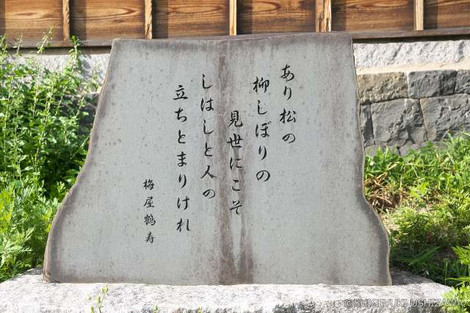 あり松の
柳しぼりの
見世にこそ
しはしと人の
立ちとまりけれ
梅屋鶴寿